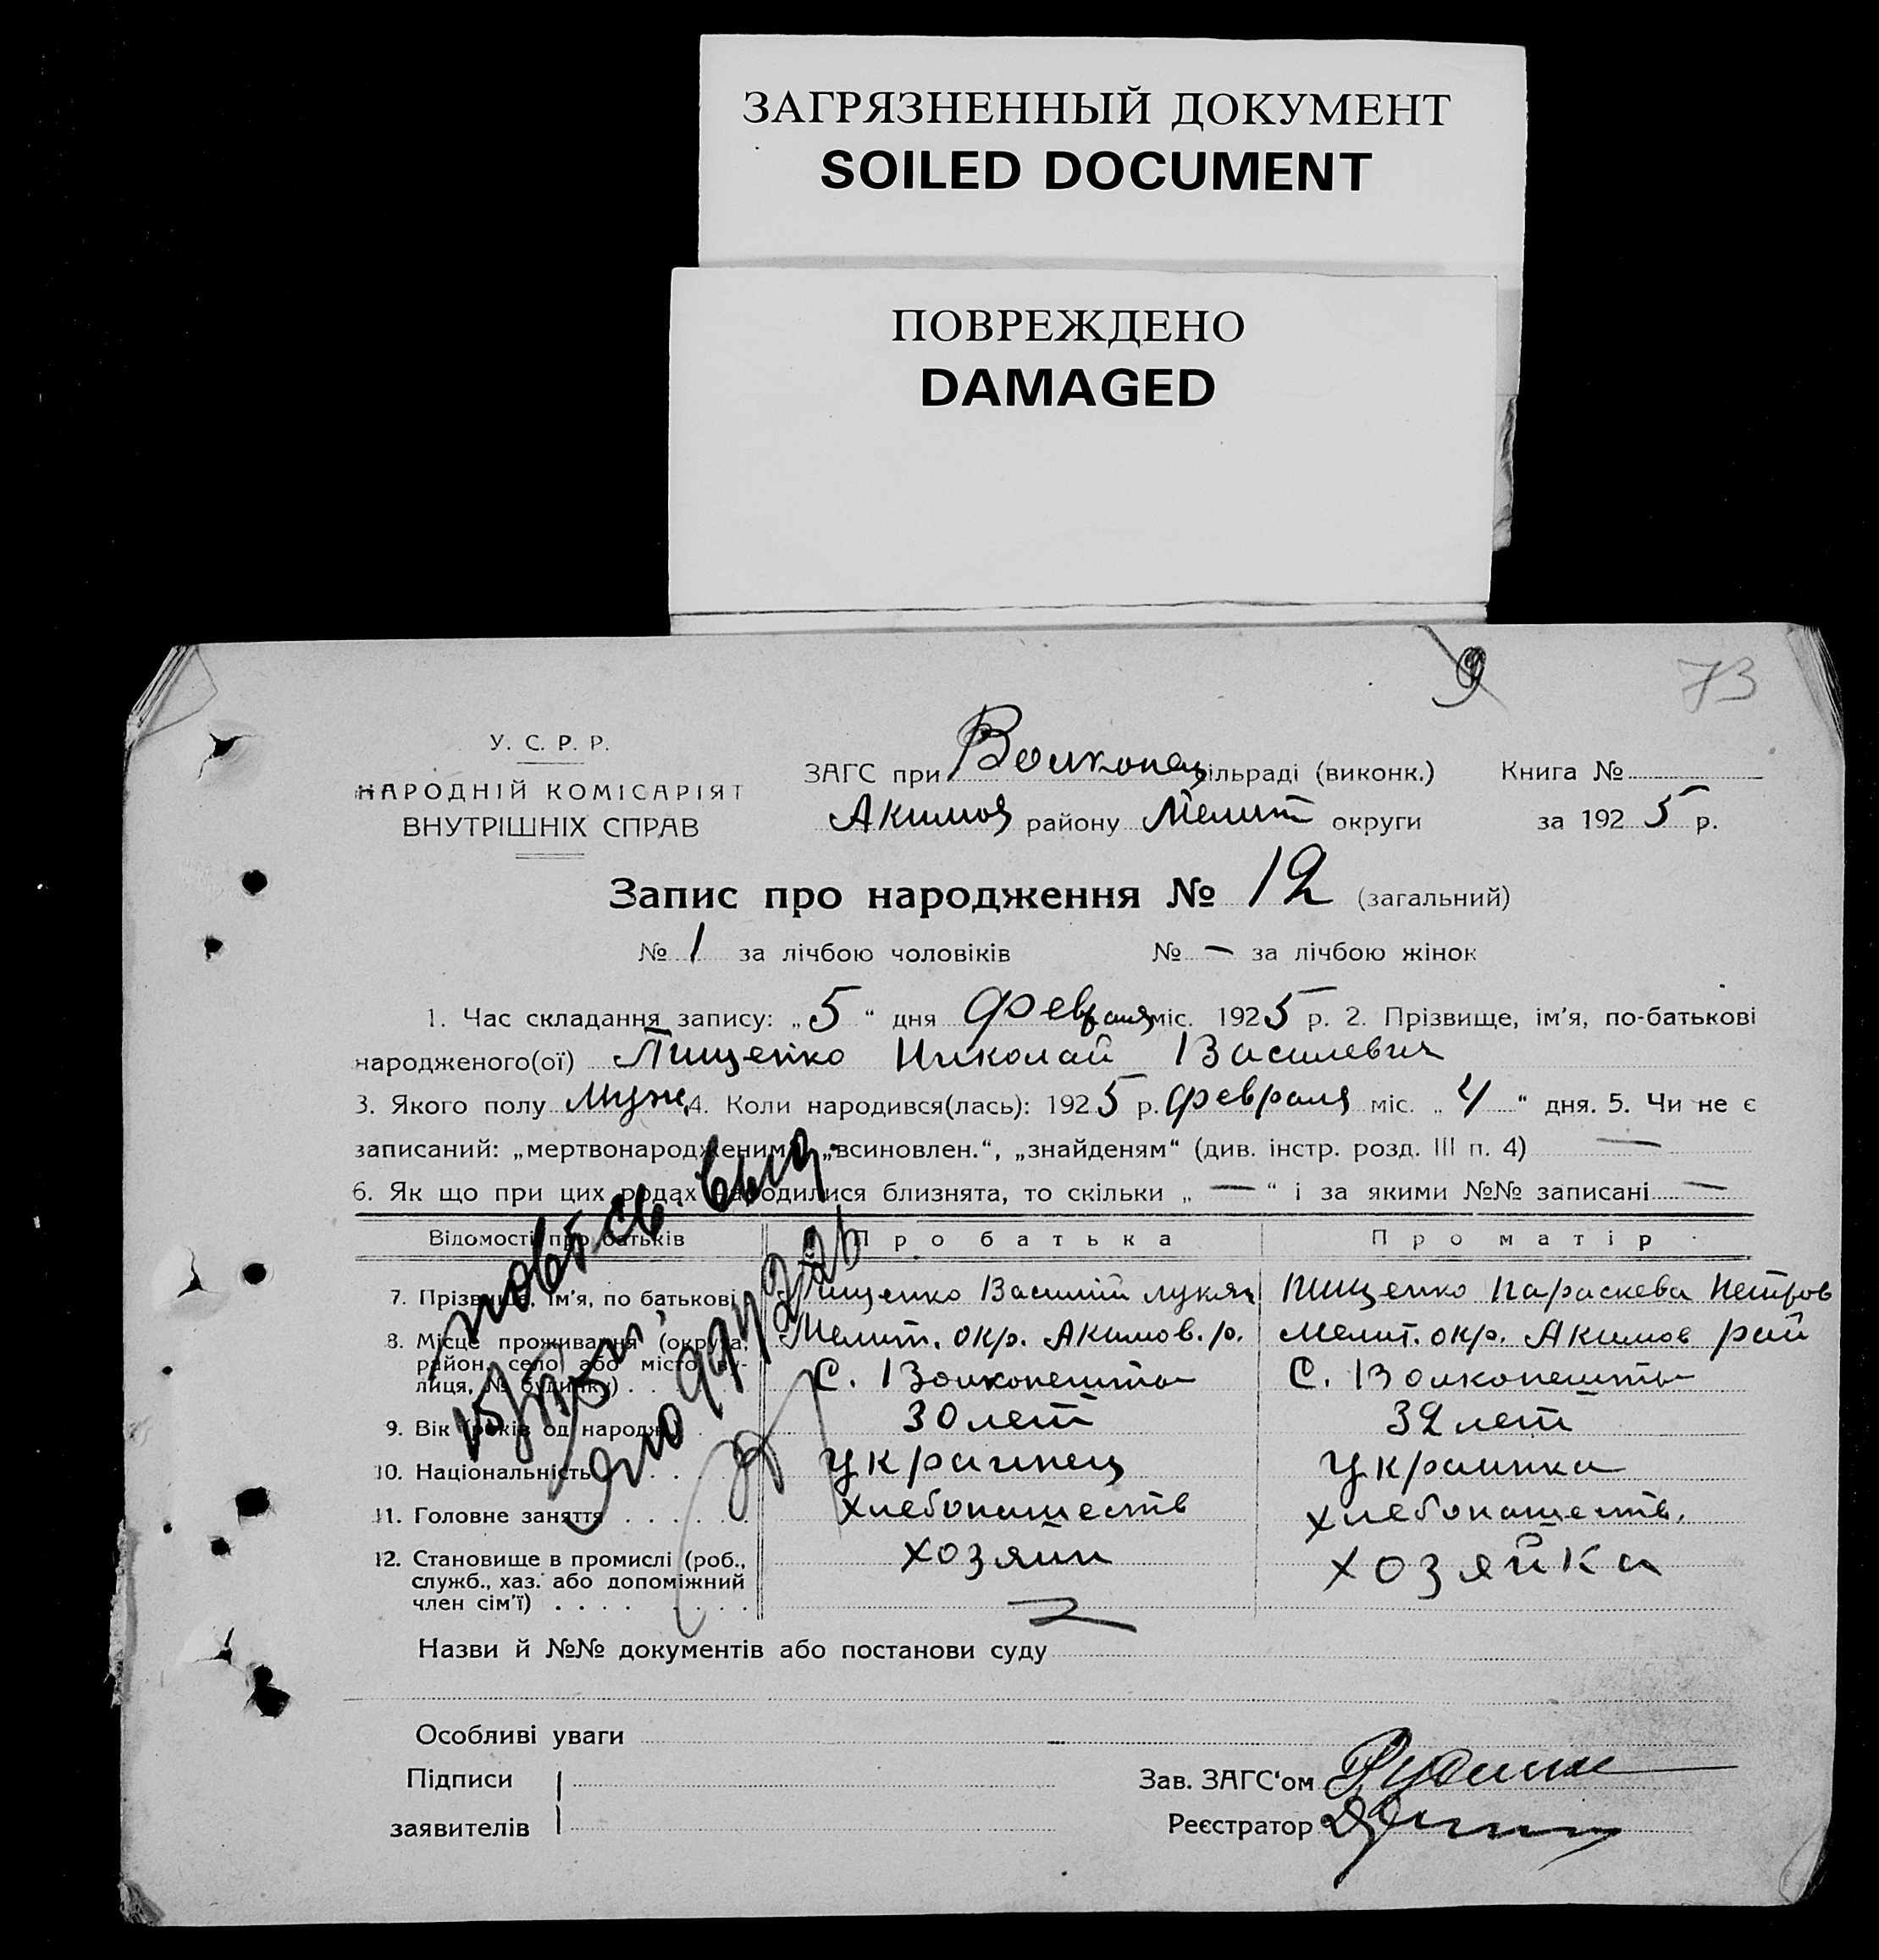 ЗАГРЯЗНЕННЫЙ ДОКУМЕНТ
SOILED DOCUMENT
ПОВРЕЖДЕНО
DAMAGED
9
73
У. С. Р. Р.
НАРОДНІЙ КОМІСАРІЯТ
ВНУТРІШНІХ СПРАВ
ЗАГС при Волконец ільраді (виконк.) Книга №
Акимов району Мелит округи за 1925 р.
Запис про народження № 12 (загальний)
№ 1 за лічбою чоловіків № — за лічбою жінок
1. Час складання запису: „5“ дня февраля міс. 1925 р. 2. Прізвище, ім’я, по-батькові
народженого(ої) Пищенко Николай Василевич
3. Якого полу Муж. 4. Коли народився(лась): 1925 р. февраля міс. „4“ дня. 5. Чи не є
записаний: „мертвонародженим“, „всиновлен.“, „знайденям“ (див. інстр. розд. III п. 4) —
6. Як що при цих родах народилися близнята, то скільки „—“ і за якими №№ записані —
Відомості про батьків Про батька Про матір
7. Прізвище, ім’я, по батькові Пищенко Василий Лукян Пищенко Параскева Петров
8. Місце проживання (округа, Мелит. окр. Акимов. р. Мелит. окр. Акимов рай
район, село або місто, ву-
лиця, № будинку) . . С. Волконешты С. Волконешты
9. Вік (років од народж.) . 30 лет 32 лет
10. Національність . . . . Украинец Украинка
11. Головне заняття . . . . . . хлебопашеств хлебопашеств.
12. Становище в промислі (роб., хозяин хозяйка
служб., хаз. або допоміжний
член сім’ї) . . . . . . . .
Назви й №№ документів або постанови суду
Особливі уваги
Підписи
заявителів
Зав. ЗАГС‘ом
Реєстратор